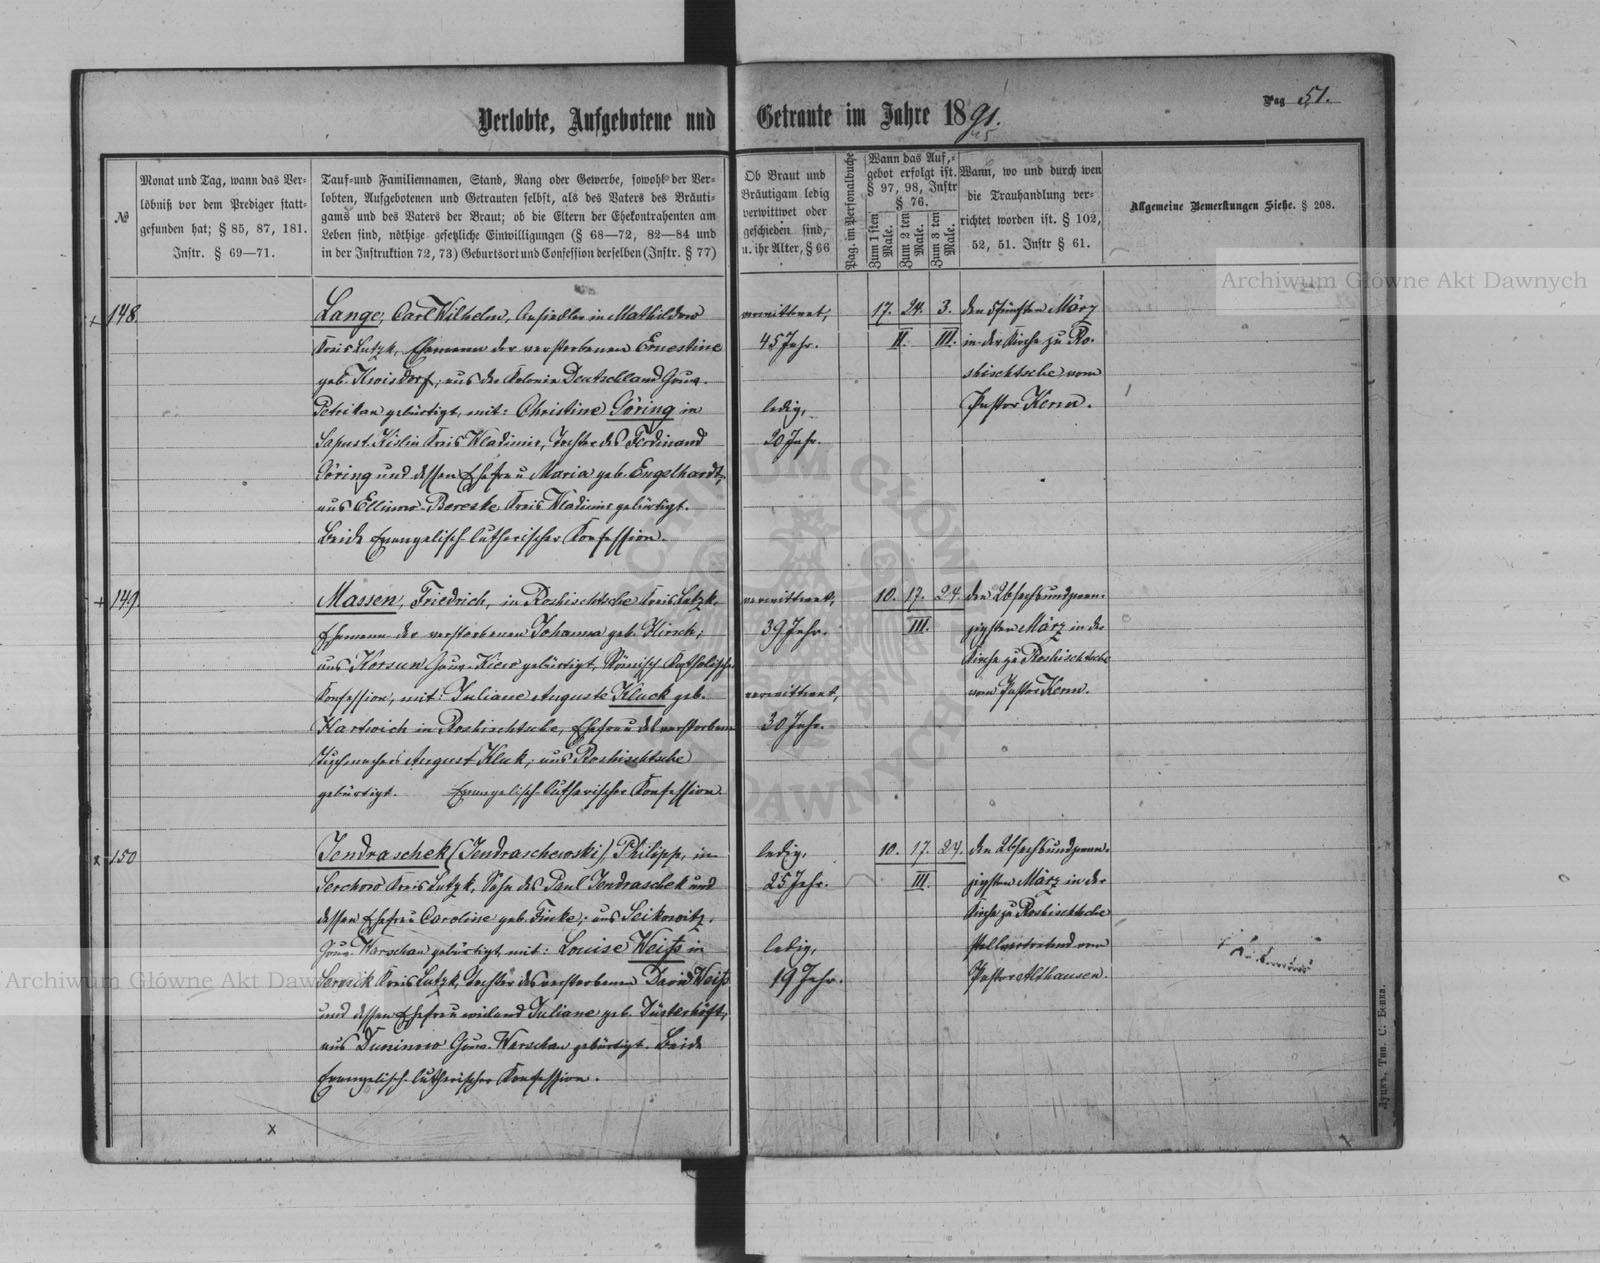 Verlobte, Aufgebotene und Getraute im Jahre 1891.
Pag 51.
№
Monat und Tag, wann das Ver-
löbniß vor dem Prediger statt-
gefunden hat; § 85, 87, 181.
Instr. § 69—71.
Tauf- und Familiennamen, Stand, Rang oder Gewerbe, sowohl der Ver-
lobten, Aufgebotenen und Getrauten selbst, als des Vaters des Bräuti-
gams und des Vaters der Braut; ob die Eltern der Ehekontrahenten am
Leben sind, nöthige gesetzliche Einwilligungen (§ 68—72, 82—84 und
in der Instruktion 72, 73) Geburtsort und Confession derselben (Instr. § 77)
Ob Braut und
Bräutigam ledig
verwittwet oder
geschieden sind,
u. ihr Alter, § 66
Pag. im Personalbuche
Wann das Auf-
gebot erfolgt ist.
§ 97, 98, Instr
§ 76.
Zum 1sten Male.
Zum 2ten Male.
Zum 3ten Male.
Wann, wo und durch wen
die Trauhandlung ver-
richtet worden ist. § 102,
52, 51. Instr § 61.
Allgemeine Bemerkungen Siehe. § 208.
148.
Lange, Carl Wilhelm, Ansiedler in Mathildow
Kreis Lutzk, Ehemann der verstorbenen Ernestine
geb. aus der Kolonie Deutschland Gouv.
Petrikau gebürtigt, mit: Christine Göring in
Kreis Wladimir, Tochter des Ferdinand
Göring und dessen Ehefrau Maria geb. Engelhardt,
aus Kreis Wladimir gebürtigt.
Beide Evangelisch-lutherischer Konfession.
verwittwet,
45 Jahr.
ledig,
20 Jahr.
17. 24. 3.
II. III.
den Fünften März
in der Kirche zu Ro-
schischtsche vom
Pastor Kern.
149
Massen, Friedrich, in Roshischtsche Kreis Lutzk,
Ehemann der verstorbenen Johanna geb. Hirsch;
aus Korsun Gouv. Kiew gebürtigt, Römisch-Katholischer
Konfession, mit: Juliane Auguste Kluck geb.
Hartwich in Roshischtsche, Ehefrau des verstorbenen
Tuchmachers August Kluk; aus Roshischtsche
gebürtigt. Evangelisch-lutherischer Konfession
verwittwet,
39 Jahr.
verwittwet,
30 Jahr.
10. 17. 24.
III.
den Sechsundzwan-
zigsten März in der
Kirche zu Roshischtsche
vom Pastor Kern.
150
Jendraschek (Jendraschewski), Philipp, in
Serchow Kreis Lutzk, Sohn des Paul Jendraschek und
dessen Ehefrau Caroline geb. Finke; aus Seikowitz,
Gouv. Warschau gebürtigt, mit: Louise Weiß in
Kreis Lutzk, Tochter des verstorbenen David Weiß
und dessen Ehefrau weiland Juliane geb. Düsterhöft,
aus Duninow Gouv. Warschau gebürtigt. Beide
Evangelisch-lutherischer Konfession.
ledig,
25 Jahr.
ledig,
19 Jahr.
10. 17. 24.
III.
den Sechsundzwan-
zigsten März in der
Kirche zu Roshischtsche
stellvertretend vom
Pastor Althausen.
x
Луцкъ, Тип. С. Бенка.
Archiwum Główne Akt Dawnych
Archiwum Główne Akt Dawnych
ARCHIWUM GŁÓWNE AKT DAWNYCH